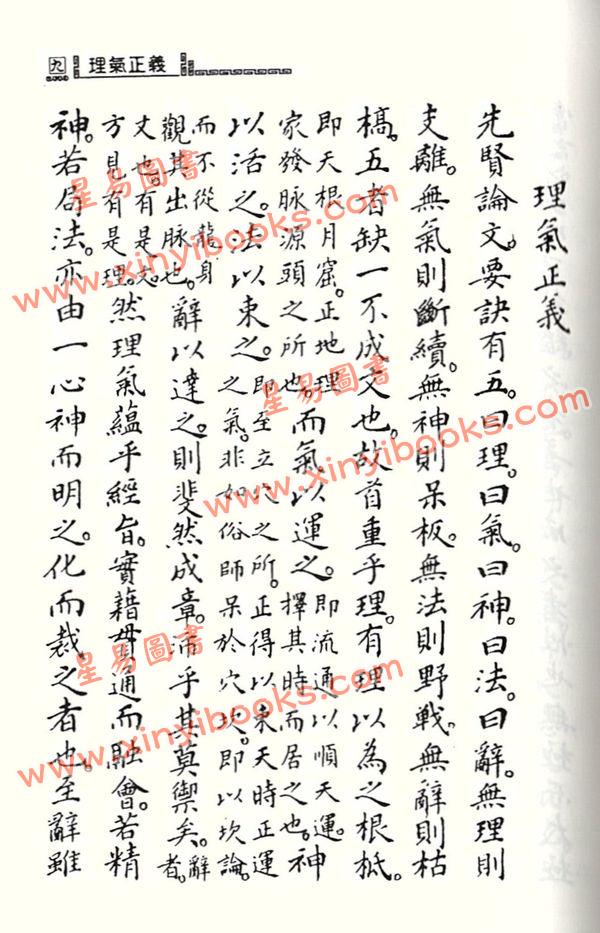 九 理氣正義
理氣正義
先賢論文。要訣有五。曰理。曰氣。曰神。曰法。曰辭。無理則
支離。無氣則斷續。無神則呆板。無法則野戰。無辭則枯
槁。五者缺一不成文也。故首重乎理。有理以為之根柢。
即天根月窟。正地理家發脉源頭之所也。而氣以運之。即流通以順天運。擇其時而居之也。神
以活之。法以束之。即至立穴之所。正得以束天時正運之氣。非如俗師呆於穴坎。即以坎論。
而不從龍身觀其出脉也。辭以達之。則斐然成章。沛乎其莫禦矣。辭者。
文也。有是志方見有是理。然理氣蘊乎經旨。實藉貫通而融會。若精
神。若局法。亦由一心神而明之。化而裁之者也。至辭雖
星易圖書
www.xinyibooks.com
星易圖書
www.xinyibooks.com
星易圖書
www.xinyibooks.com